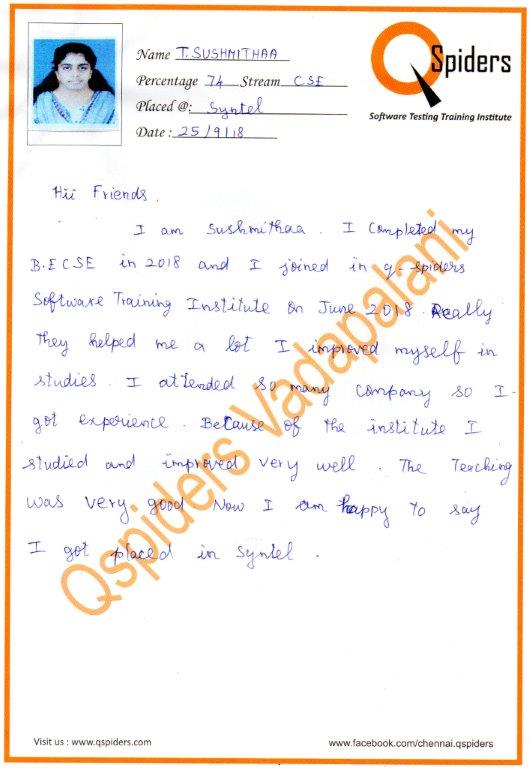 Name T. SUSHMITHAA
Percentage 74 Stream CSE
Placed @: Syntel
Date : 25/9/18
QSpiders
Software Testing Training Institute
Hii Friends,
I am Sushmithaa. I Completed my
B.E CSE in 2018 and I joined in q-spiders
Software Training Institute on June 2018. Really
They helped me a lot I improved myself in
studies. I attended so many company so I
got experience. Because of the institute I
studied and improved very well. The Teaching
was very good Now I am happy to say
I got placed in Syntel.
Qspiders Vadapalani
Visit us : www.qspiders.com
www.facebook.com/chennai.qspiders